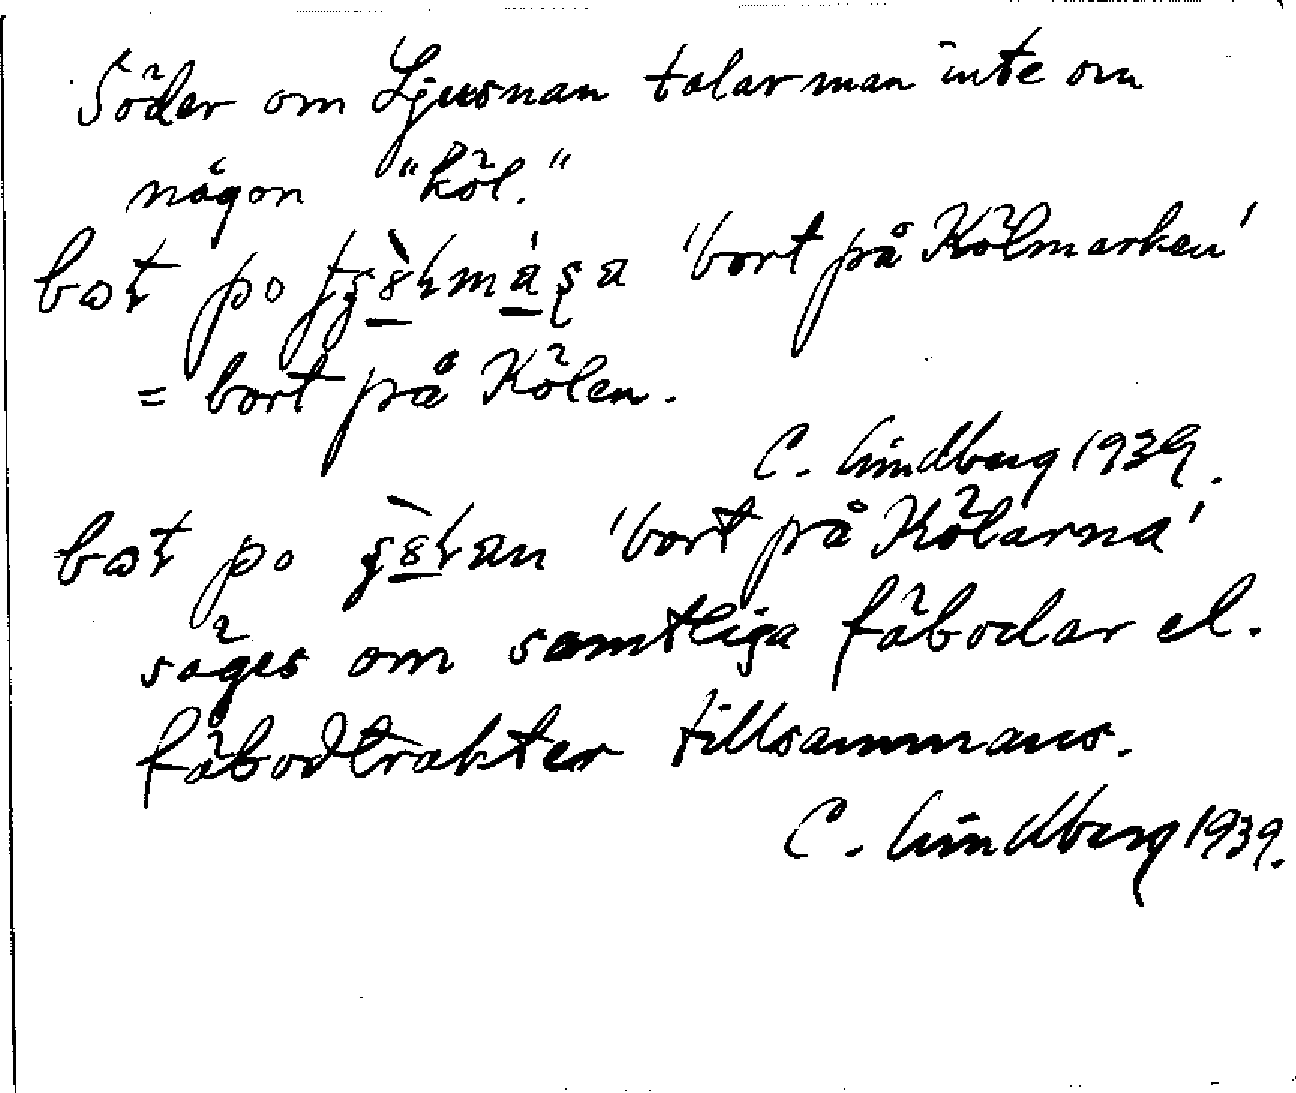 Söder om Ljusnan talar man inte om
någon "köl."
bort po 'bort på Kölmarken'
= bort på Kölen.
C. Lindberg 1939.
po 'bort på Kölarna'
säges om samtliga fäbodar el.
fäbodtrakter tillsammans.
C. Lindberg 1939.